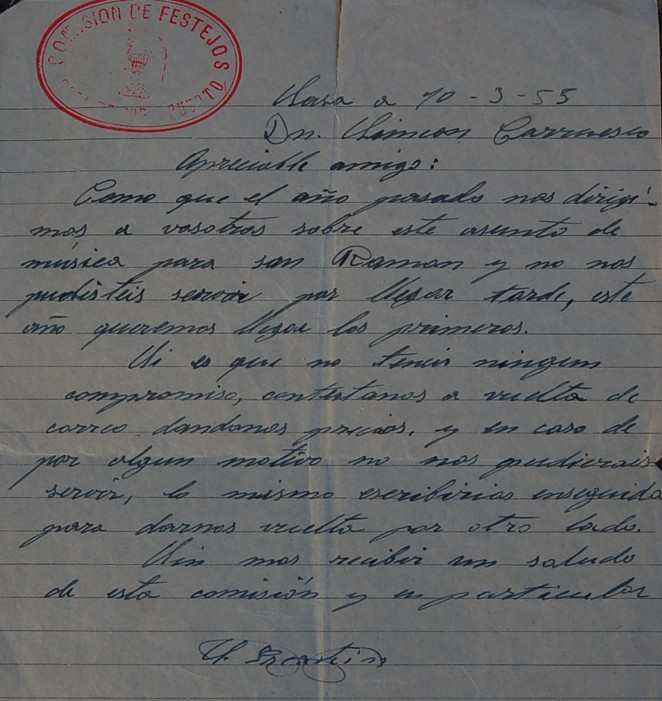 COMISION DE FESTEJOS
a 10-3-55
Dn. Simeon Carruesco
Apreciable amigo:
Como que el año pasado nos dirigi-
mos a vosotros sobre este asunto de
música para san Ramon y no nos
pudisteis servir por llegar tarde, este
año queremos llegar los primeros.
Si es que no teneis ningun
compromiso, contestanos a vuelta de
correo dandonos precios, y en caso de
por algun motivo no nos pudierais
servir, lo mismo escribirias enseguida
para darnos vuelta por otro lado.
Sin mas recibir un saludo
de esta comisión y en particular